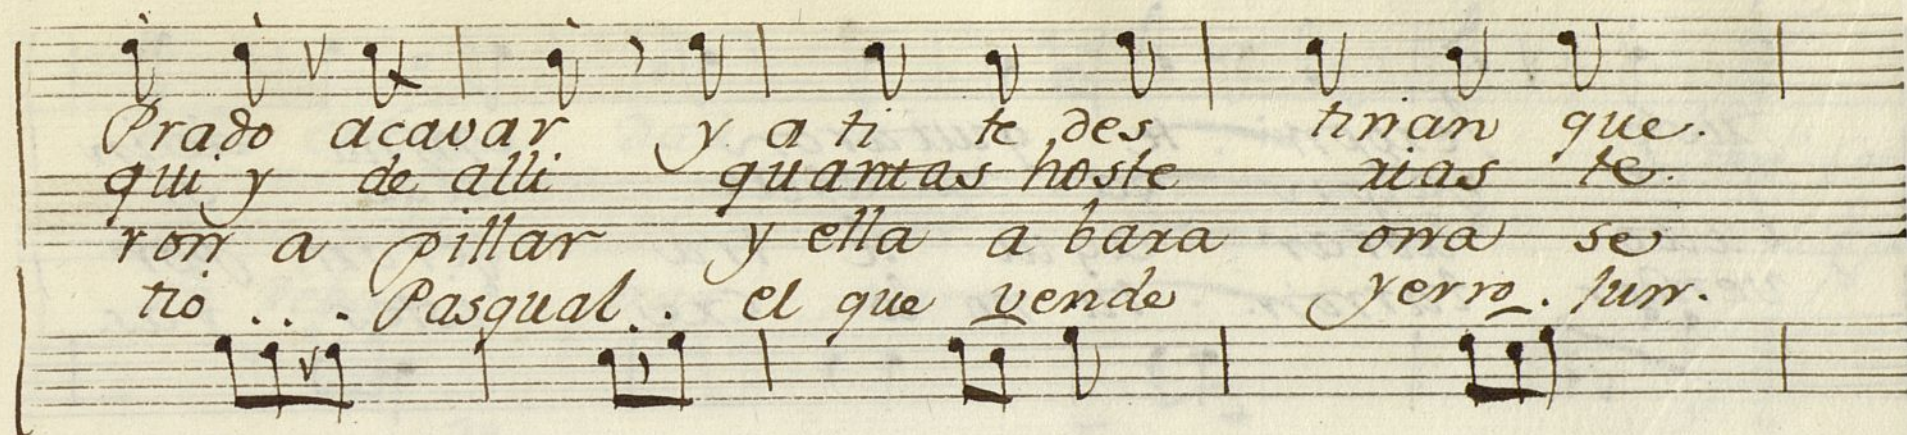 Prado acavar y a ti te des tinan que.
qui y de alli quantas hoste rias te.
ron a pillar y ella a bara ona se
tio . . . Pasqual . . el que vende yerro . Jun.